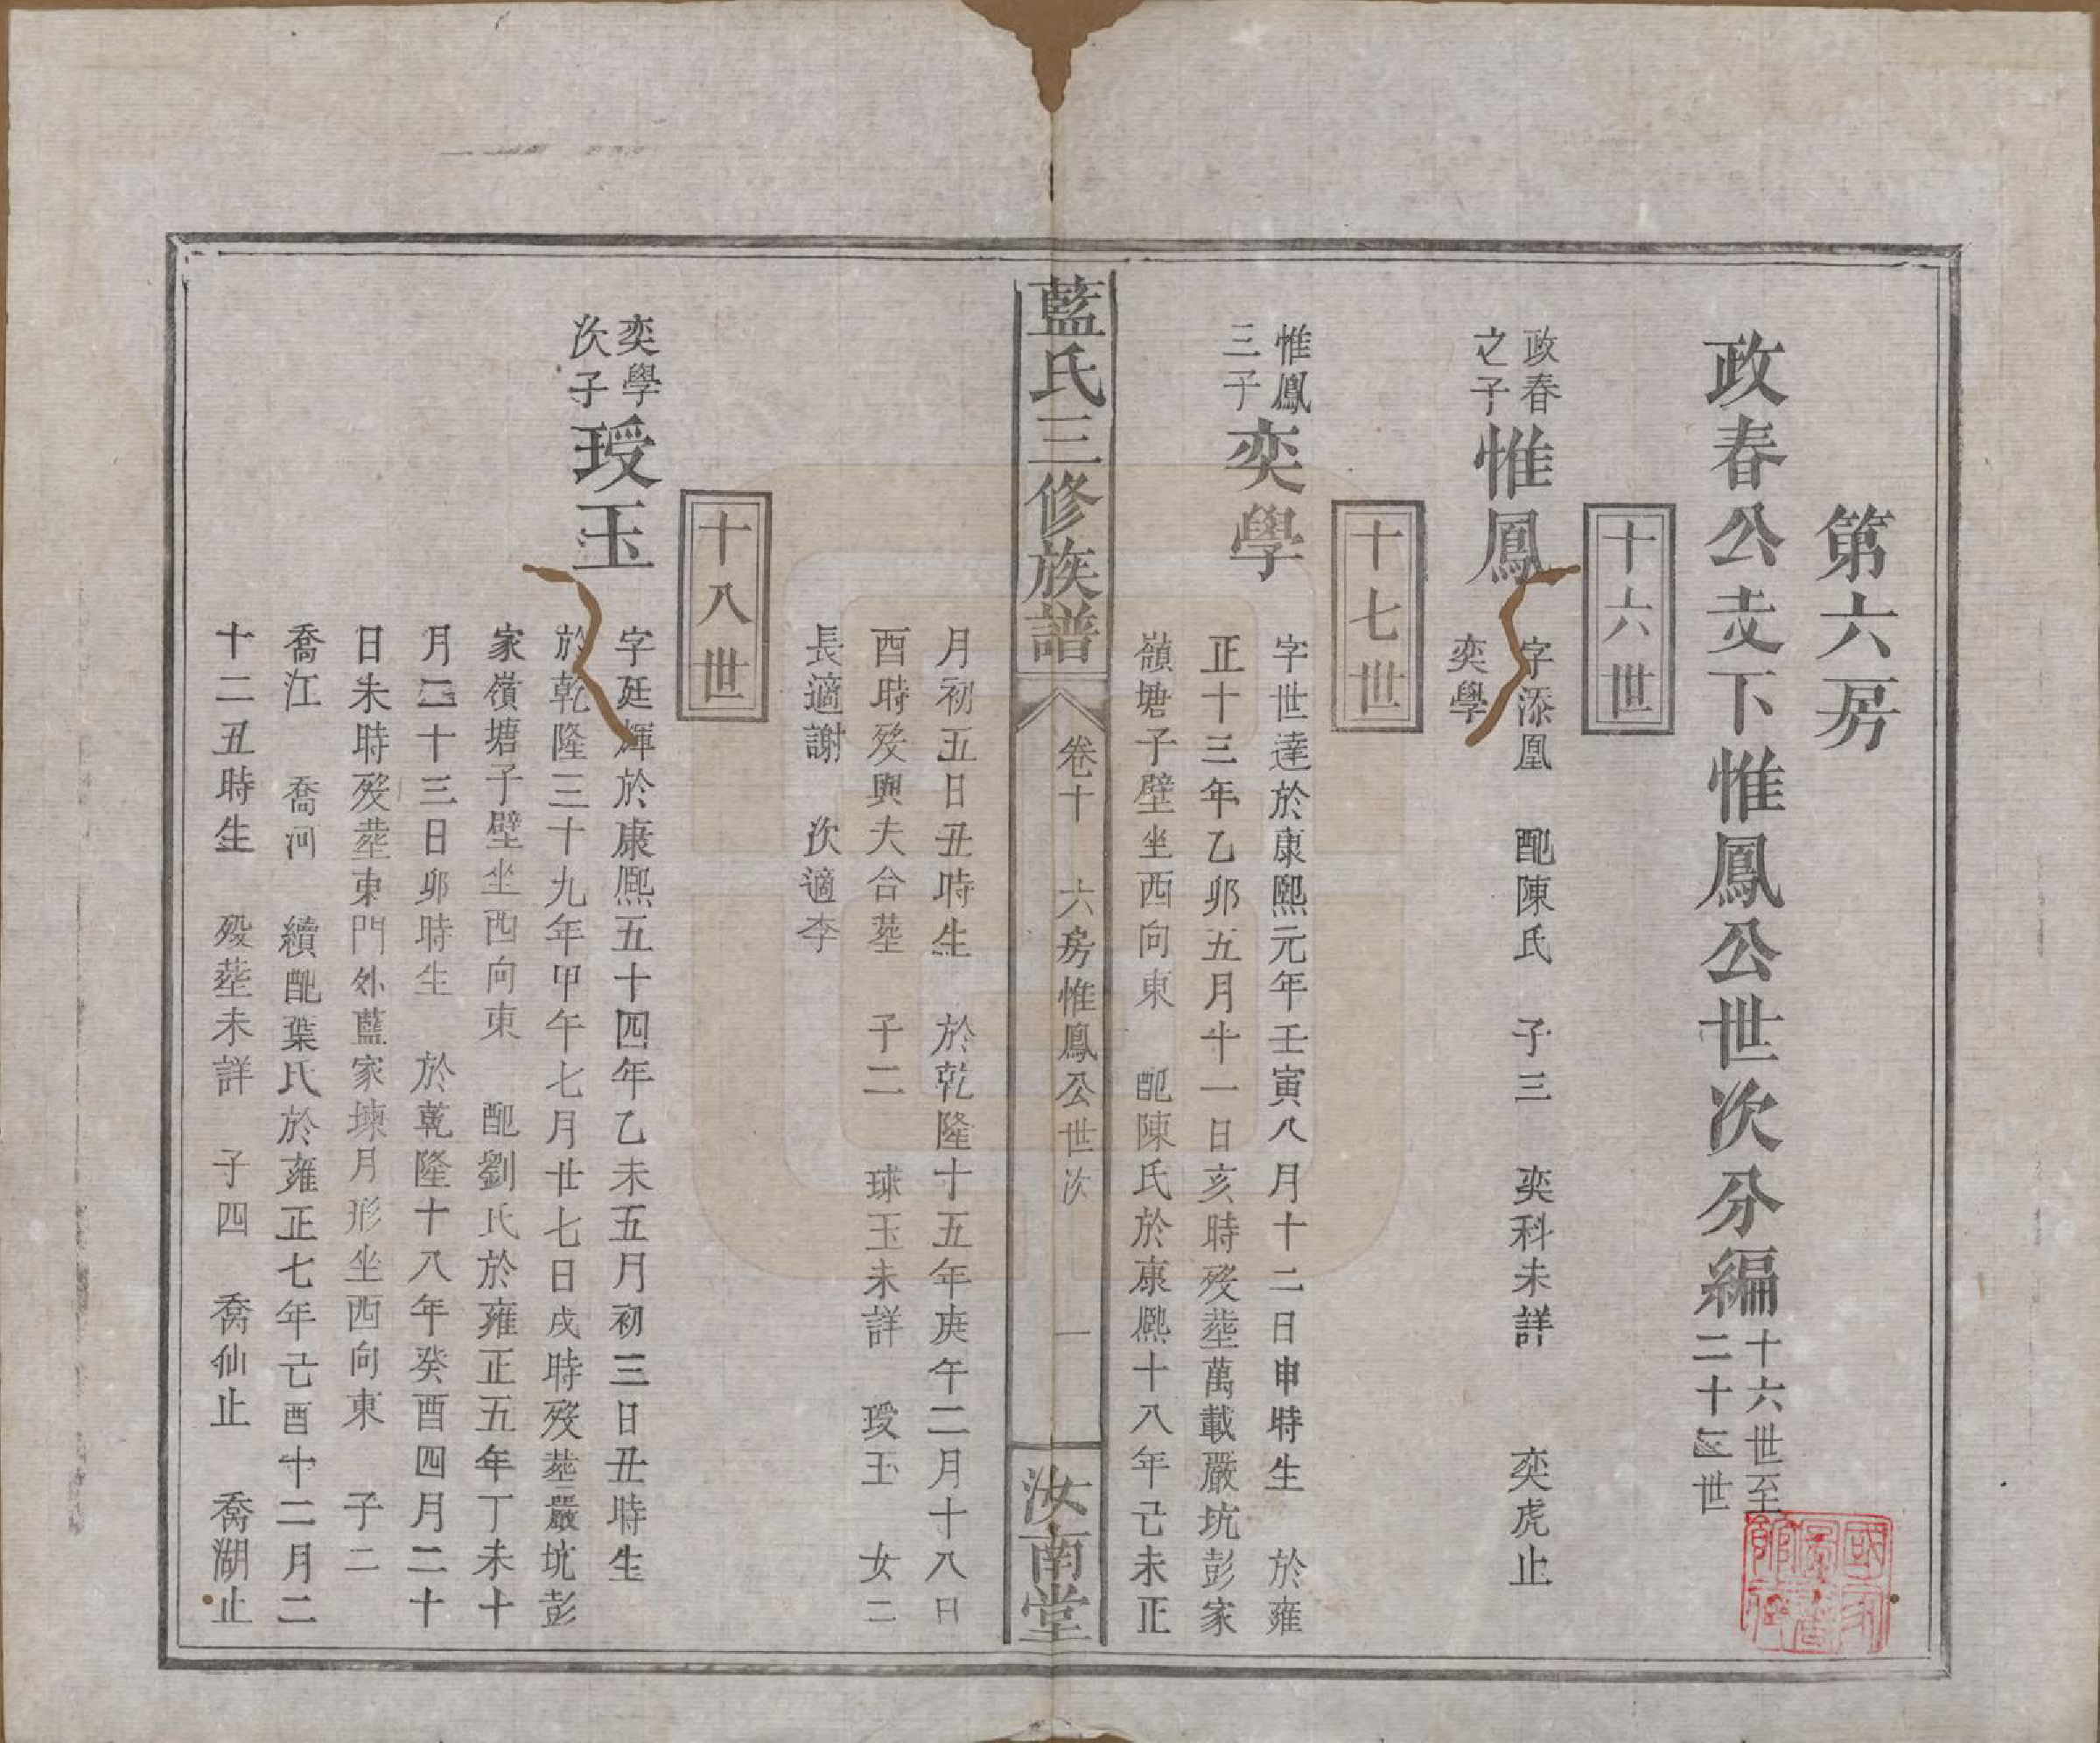 第六房
政春公支下惟鳳公世次分編
十六世至
二十三世
十六世
政春
之子
惟鳳
字添凰 配陳氏 子三 奕科未詳 奕虎止
奕學
十七世
惟鳳
三子
奕學
字世達於康熙元年壬寅八月十二日申時生 於雍
正十三年乙卯五月十一日亥時殁塟萬載嚴坑彭家
嶺塘子壁坐西向東 配陳氏於康熙十八年己未正
藍氏三修族譜
卷十 六房惟鳳公世次 一
汝南堂
月初五日丑時生 於乾隆十五年庚午二月十八日
酉時殁與夫合塟 子二 球玉未詳 瑷玉 女二
長適謝 次適李
十八世
奕學
次子
瑷玉
字廷輝於康熙五十四年乙未五月初三日丑時生
於乾隆三十九年甲午七月廿七日戌時殁塟嚴坑彭
家嶺塘子壁坐西向東 配劉氏於雍正五年丁未十
月二十三日卯時生 於乾隆十八年癸酉四月二十
日未時殁塟東門外藍家㙡月形坐西向東 子二
喬江 喬河 續配葉氏於雍正七年己酉十二月二
十二丑時生 殁塟未詳 子四 喬仙止 喬湖止
國家圖書館藏